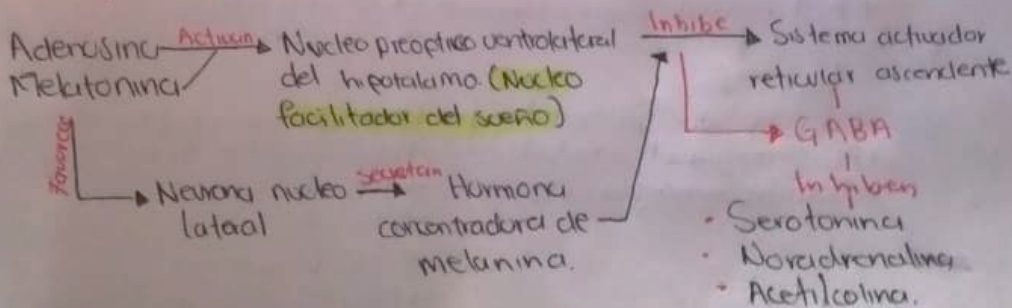 Adenosina
Melatonina
Activan
Nucleo preoptico ventrolateral
del hipotalamo. (Nucleo
facilitador del sueño)
Inhibe
Sistema activador
reticular ascendente
GABA
Inhiben
• Serotonina
• Noradrenalina
• Acetilcolina.
Neurona nucleo
lateral
secretan
Hormona
concentradora de
melanina.